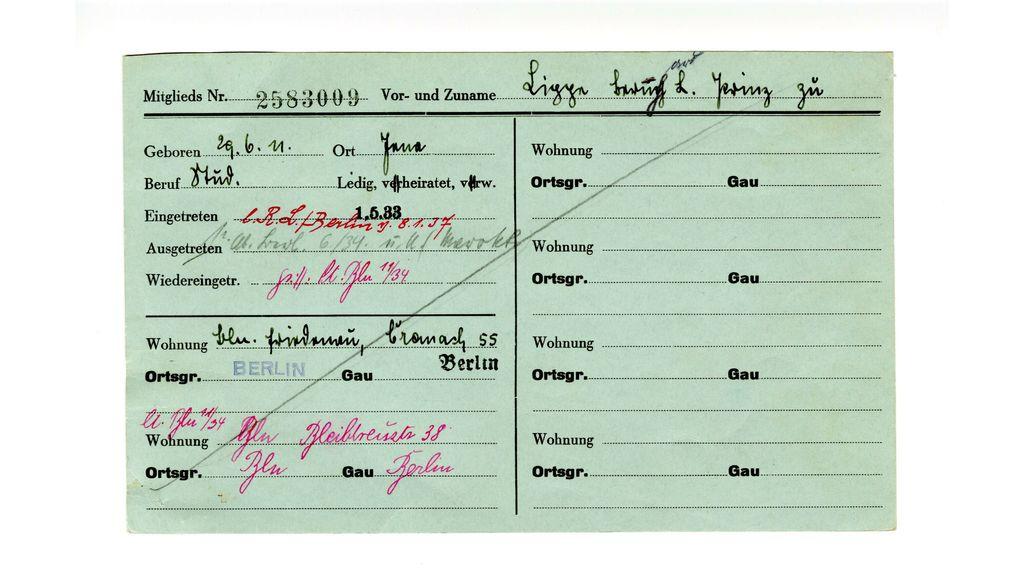 Mitglieds Nr. 2583009 Vor- und Zuname Lippe Bernhard L. Prinz zu
Geboren 29.6.11. Ort Jena
Beruf Stud. Ledig, verheiratet, verw.
Eingetreten 1.5.33
l. R. L./Berlin v. 8.1.37
Ausgetreten 6/34. u. Marokko
Wiedereingetr. lt. Bln 11/34
Wohnung Bln. Friedenau, Cranach 55
Ortsgr. BERLIN Gau Berlin
lt. Bln 11/34
Wohnung Bln Bleibtreustr 38
Ortsgr. Bln Gau Berlin
Wohnung
Ortsgr. Gau
Wohnung
Ortsgr. Gau
Wohnung
Ortsgr. Gau
Wohnung
Ortsgr. Gau